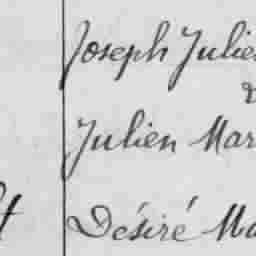 Joseph Julie
Julien Mar
Désiré Ma